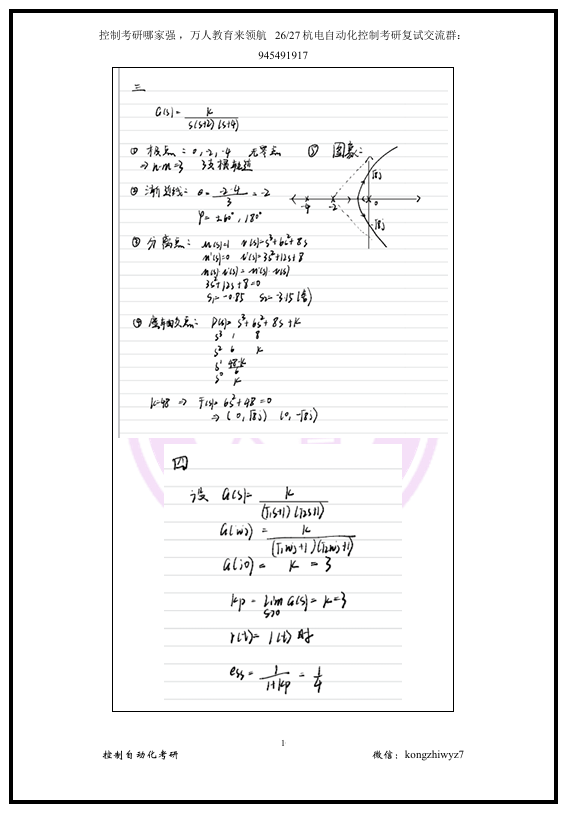 控制考研哪家强，万人教育来领航 26/27杭电自动化控制考研复试交流群：
945491917
三
G(s)= K / s(s+2)(s+4)
① 极点：0,-2,-4 无零点
⇒ n-m=3 3支根轨迹
⑤ 图象：
② 渐近线：σ= -2-4 / 3 = -2
φ= ±60°, 180°
√8j
-4 -2 0
-√8j
③ 分离点：m(s)=1 n(s)=s³+6s²+8s
m'(s)=0 n'(s)=3s²+12s+8
m(s)·n'(s) = m'(s)·n(s)
3s²+12s+8=0
s₁=-0.85 s₂=-3.15(舍)
④ 虚轴交点：D(s)= s³+6s²+8s+K
s³ 1 8
s² 6 K
s¹ 48-K / 6
s⁰ K
K=48 ⇒ F(s)= 6s²+48=0
⇒ (0,√8j) (0,-√8j)
四
设 G(s)= K / (T₁s+1)(T₂s+1)
G(jω) = K / (T₁ωj+1)(T₂ωj+1)
G(j0) = K = 3
Kp = lim s→0 G(s) = K=3
r(t)= 1(t) 时
ess= 1 / 1+Kp = 1/4
1
控制自动化考研 微信：kongzhiwyz7